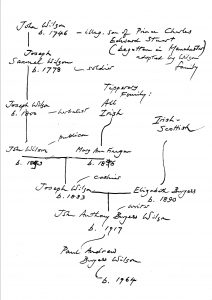 John Wilson
b. 1746 - illeg. son of Prince Charles
Edward Stuart
(begotten in Manchester)
adopted by Wilson
family
Joseph
Samuel Wilson
b. 1778 → soldier
Tipperary
Family:
All
Irish
Joseph Wilson
b. 1800 → herbalist
Irish-
Scottish
publican
John Wilson
b. 1863
Mary Ann Finnegan
b. 1898
cashier
Joseph Wilson
b. 1883
Elizabeth Burgess
b. 1890
John Anthony Burgess Wilson
b. 1917
Paul Andrew
Burgess Wilson
b. 1964